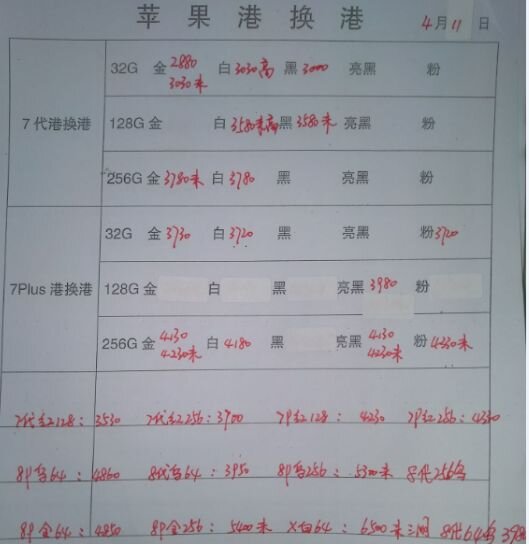 苹果港换港 4月11日
7代港换港
32G 金2880 3030未 白3030高 黑3000 亮黑 粉
128G 金 白3580未高 黑3580未 亮黑 粉
256G 金3780未 白3780 黑 亮黑 粉
7Plus 港换港
32G 金3730 白3720 黑 亮黑 粉3720
128G 金 白 黑 亮黑3980 粉
256G 金4130 4230未 白4180 黑 亮黑4130 4230未 粉4230未
7代红128：3530 7代红256：3700 7P红128：4230 7P红256：4330
8P 64：4860 8代 64：3950 8P 256：5300未 8代256
8P金64：4850 8P金256：5400未 X白64：6500未三网 8代64